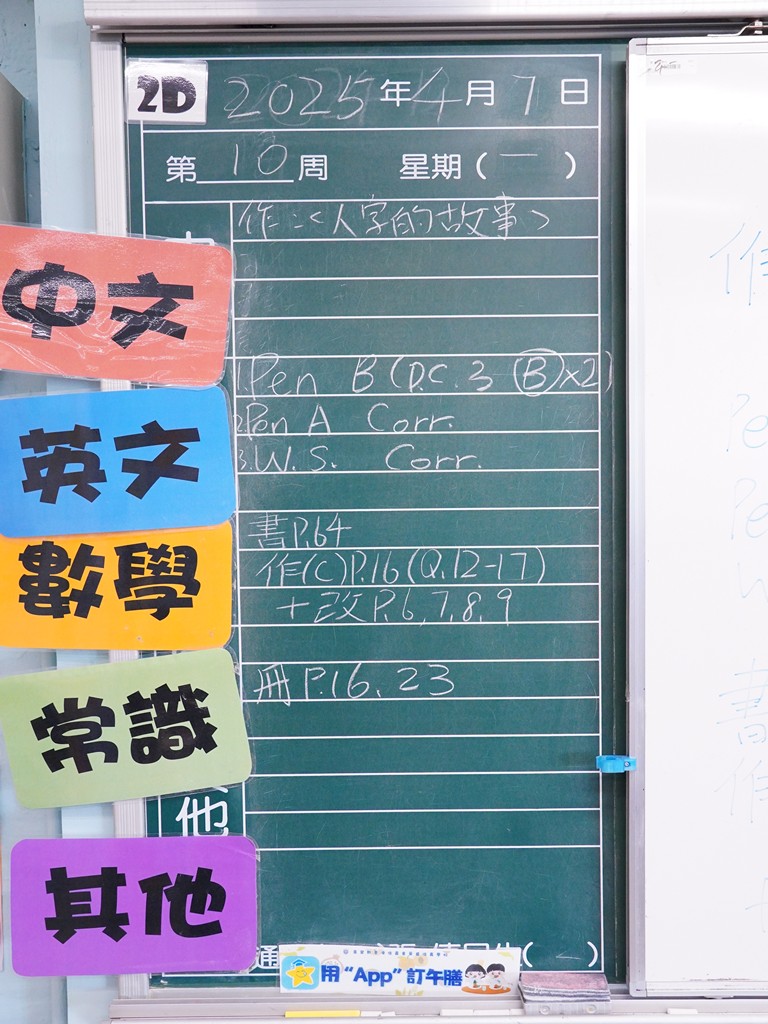 2D 2025年4月7日
第10周 星期(一)
作:<人字的故事>
中文
1.Pen B (D.C. 3 Ⓑ×2)
2.Pen A Corr.
英文
3.W.S. Corr.
書P.64
數學
作(C)P.16(Q.12-17)
+改P.6,7,8,9
冊P.16,23
常識
他
其他
用“App”訂午膳